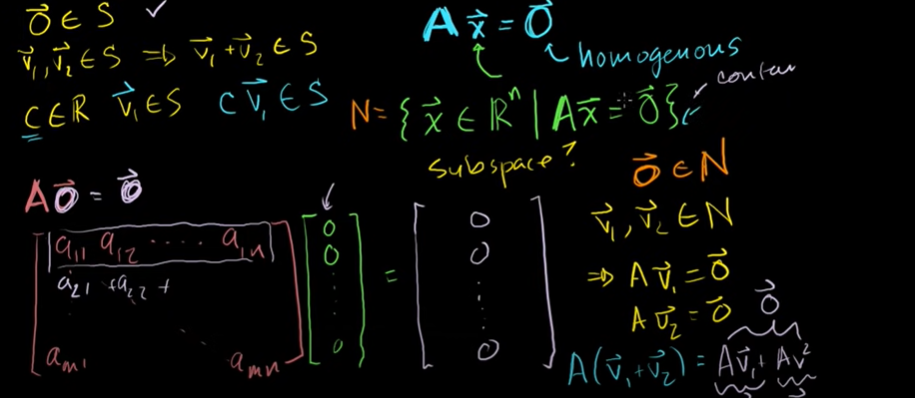 0⃗ ∈ S ✓
v⃗₁, v⃗₂ ∈ S ⇒ v⃗₁ + v⃗₂ ∈ S
c ∈ R v⃗₁ ∈ S c v⃗₁ ∈ S
A x⃗ = 0⃗
homogenous
N = { x⃗ ∈ ℝⁿ | A x⃗ = 0⃗ }
subspace?
A 0⃗ = 0⃗
a₁₁ a₁₂ ····· a₁ₙ
a₂₁ + a₂₂ +
aₘ₁ aₘₙ
0
0
⋮
0
=
0
0
⋮
0
0⃗ ∈ N
v⃗₁, v⃗₂ ∈ N
⇒ A v⃗₁ = 0⃗
A v⃗₂ = 0⃗
0⃗
A(v⃗₁ + v⃗₂) = A v⃗₁ + A v⃗²